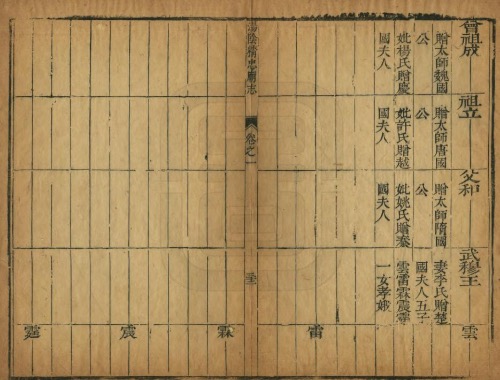 曾祖成
贈太師魏國
公
妣楊氏贈慶
國夫人
祖立
贈太師唐國
公
妣許氏贈越
國夫人
父和
贈太師隋國
公
妣姚氏贈秦
國夫人
武穆王
妻李氏贈楚
國夫人五子
雲雷霖震霆
一女孝娥
雲
雷
湯陰精忠廟志
卷之一
霖
震
霆